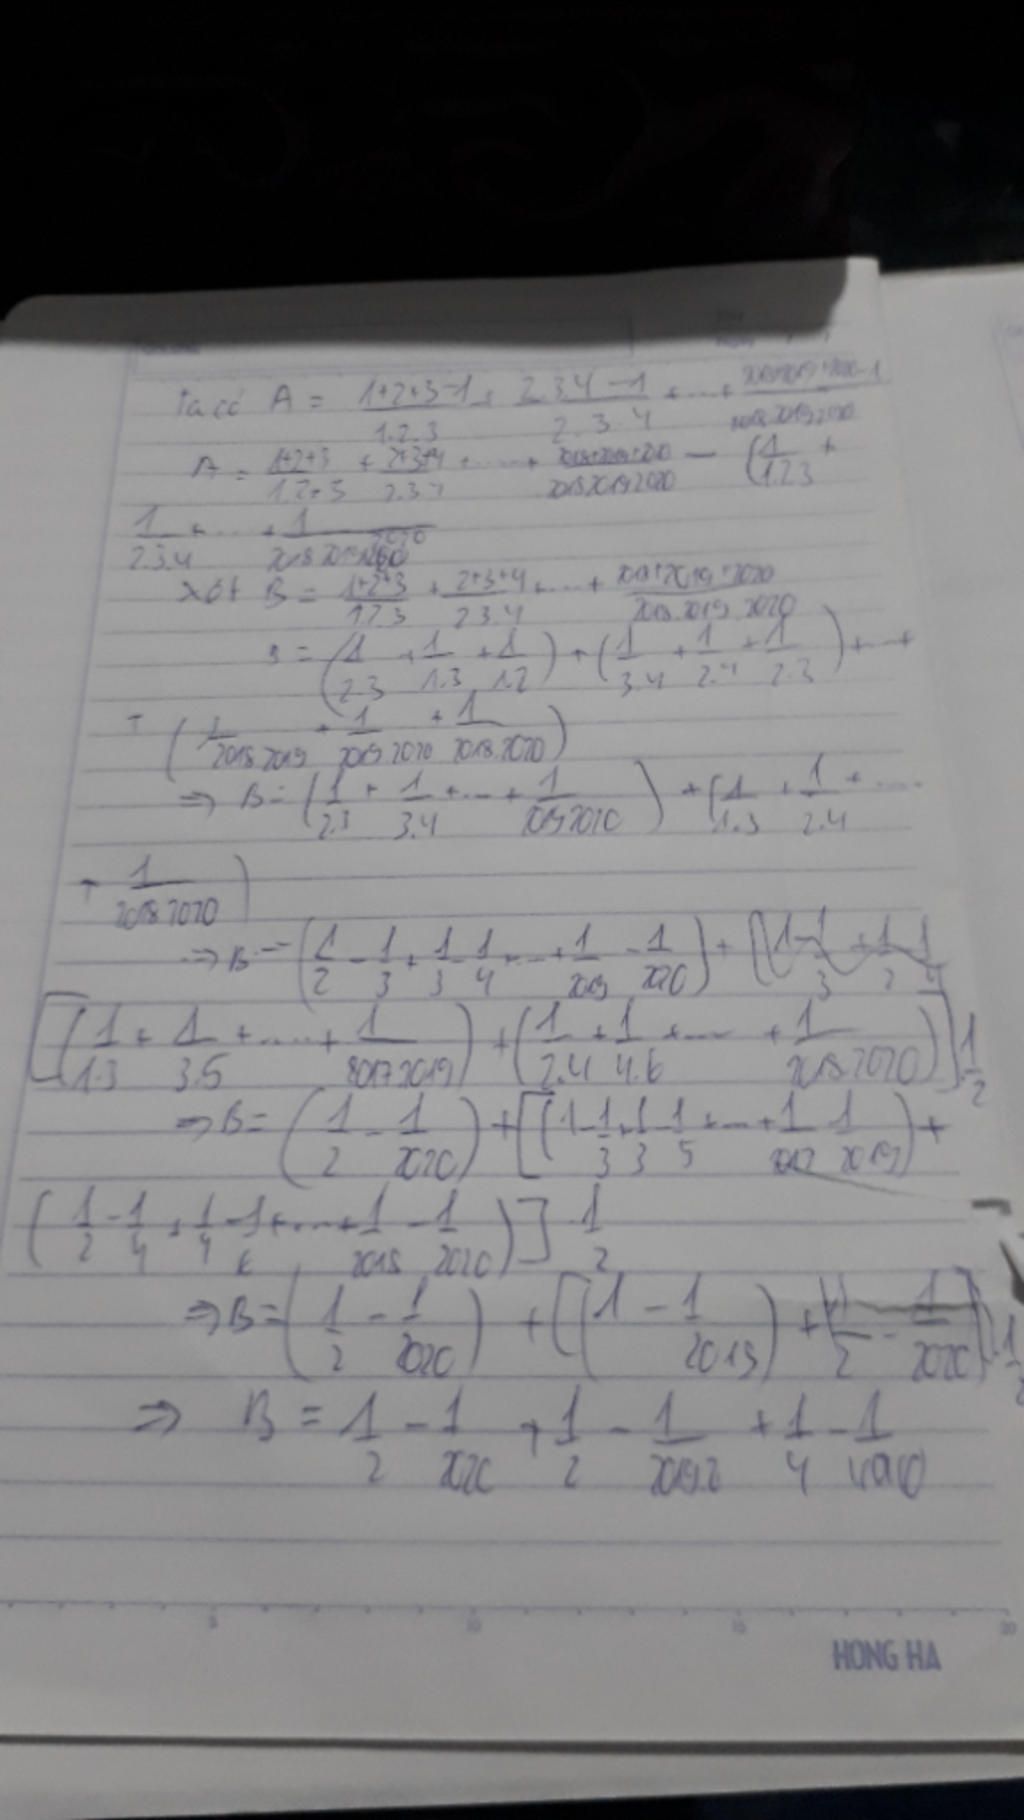 Ta có A = 1+2+3-1 / 1.2.3 + 2.3.4-1 / 2.3.4 + ... + 2018+2019+2020-1 / 2018.2019.2020
A = 1+2+3 / 1.2+3 + 2+3+4 / 2.3.4 + .... + 2018+2019+2020 / 2018.2019.2020 - ( 1 / 1.2.3 +
1 / 2.3.4 + ... + 1 / 2018.2019.2020
xét B = 1+2+3 / 1.2.3 + 2+3+4 / 2.3.4 + .... + 2018+2019+2020 / 2018.2019.2020
B = ( 1 / 2.3 + 1 / 1.3 + 1 / 1.2 ) + ( 1 / 3.4 + 1 / 2.4 + 1 / 2.3 ) + ... +
+ ( 1 / 2018.2019 + 1 / 2019.2020 + 1 / 2018.2020 )
⇒ B = ( 1 / 2.3 + 1 / 3.4 + ... + 1 / 2019.2020 ) + ( 1 / 1.3 + 1 / 2.4 + ....
+ 1 / 2018.2020 )
⇒ B = ( 1/2 - 1/3 + 1/3 - 1/4 + ... + 1/2019 - 1/2020 ) +
[ ( 1 / 1.3 + 1 / 3.5 + .... + 1 / 2017.2019 ) + ( 1 / 2.4 + 1 / 4.6 + .... + 1 / 2018.2020 ) ] . 1/2
⇒ B = ( 1/2 - 1/2020 ) + [ ( 1 - 1/3 + 1/3 - 1/5 + ... + 1/2017 - 1/2019 ) +
( 1/2 - 1/4 + 1/4 - 1/6 + ... + 1/2018 - 1/2020 ) ] . 1/2
⇒ B = ( 1/2 - 1/2020 ) + [ ( 1 - 1/2019 ) + ( 1/2 - 1/2020 ) ] . 1/2
⇒ B = 1/2 - 1/2020 + 1/2 - 1/2019.2 + 1/4 - 1/4040
5 10 15 20
HONG HA